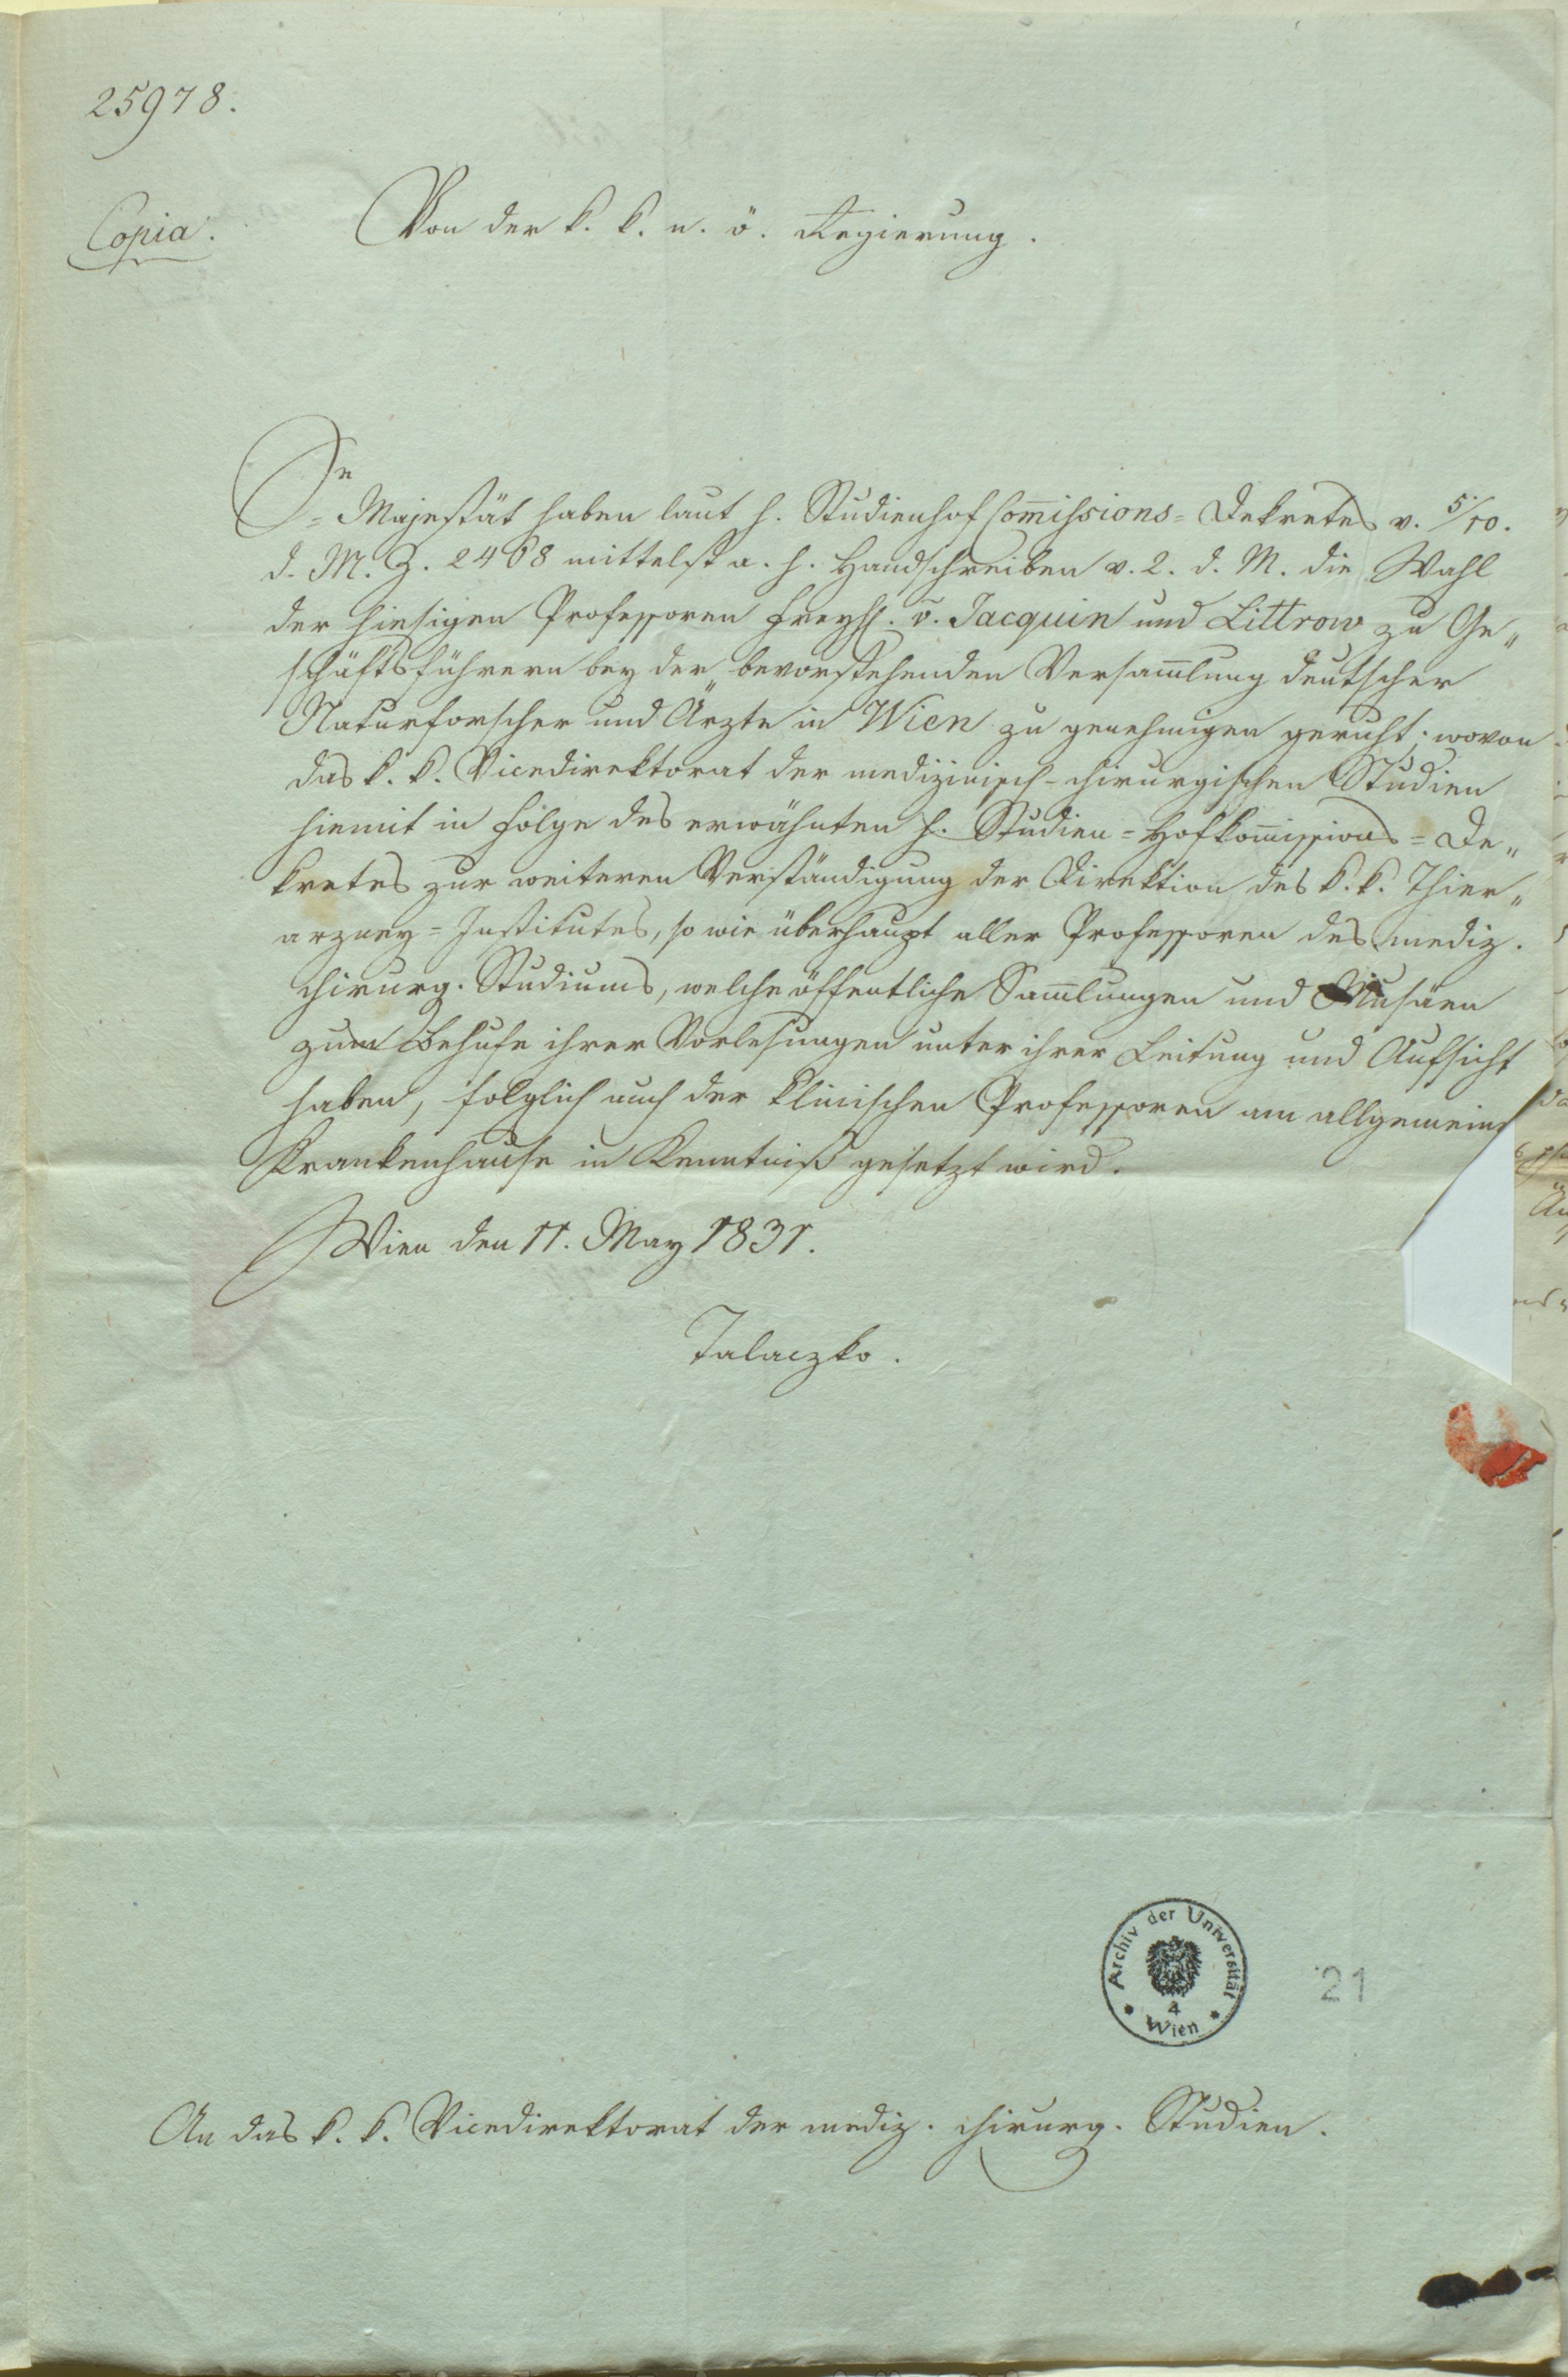 25978.
Copia.
Von der k. k. n. ö. Regierung.
Se
= Majestät haben laut h. Studienhof Com̄issions = Dekretes v. 5/10.
d. M. Z. 2468 mittelst a. h. Handschreiben v. 2. d. M. die Wahl
der hiesigen Professoren Freyh. v. Jacquin und Littrow zu Ge„
schäftsführern bey der bevorstehenden Versam̄lung deutscher
Naturforscher und Ärzte in Wien zu genehmigen geruht; wovon
das k. k. Vicedirektorat der medizinisch-chirurgischen Studien
hiemit in Folge des erwähnten h. Studien = Hofkom̄issions = De„
kretes zur weiteren Verständigung der Direktion des k. k. Thier„
arzney = Institutes, so wie überhaupt aller Professoren des mediz.
chirurg. Studiums, welche öffentliche Sam̄lungen und Musäen
zum Behufe ihrer Vorlesungen unter ihrer Leitung und Aufsicht
haben, folglich auch der klinischen Professoren am allgemeine
Krankenhause in Kenntniß gesetzt wird.
Wien den 11. May 1831.
Talaczko.
Archiv der Universität
4
Wien
21
An das k. k. Vicedirektorat der mediz. chirurg. Studien.